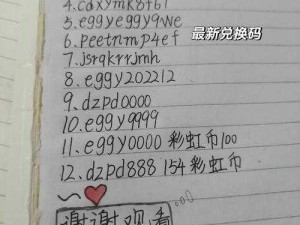 最新兑换码
4.cdxymk8f61
5.eggyeggy9ne
6.peetnmp4ef
7.jsrqkrrjmh
8.eggy202212
9.dzpd0000
10.eggy9999
11.eggy0000 彩虹币100
12.dzpd888 154彩虹币
谢谢观看